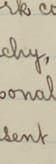 rk co
chy,
sonal
sent